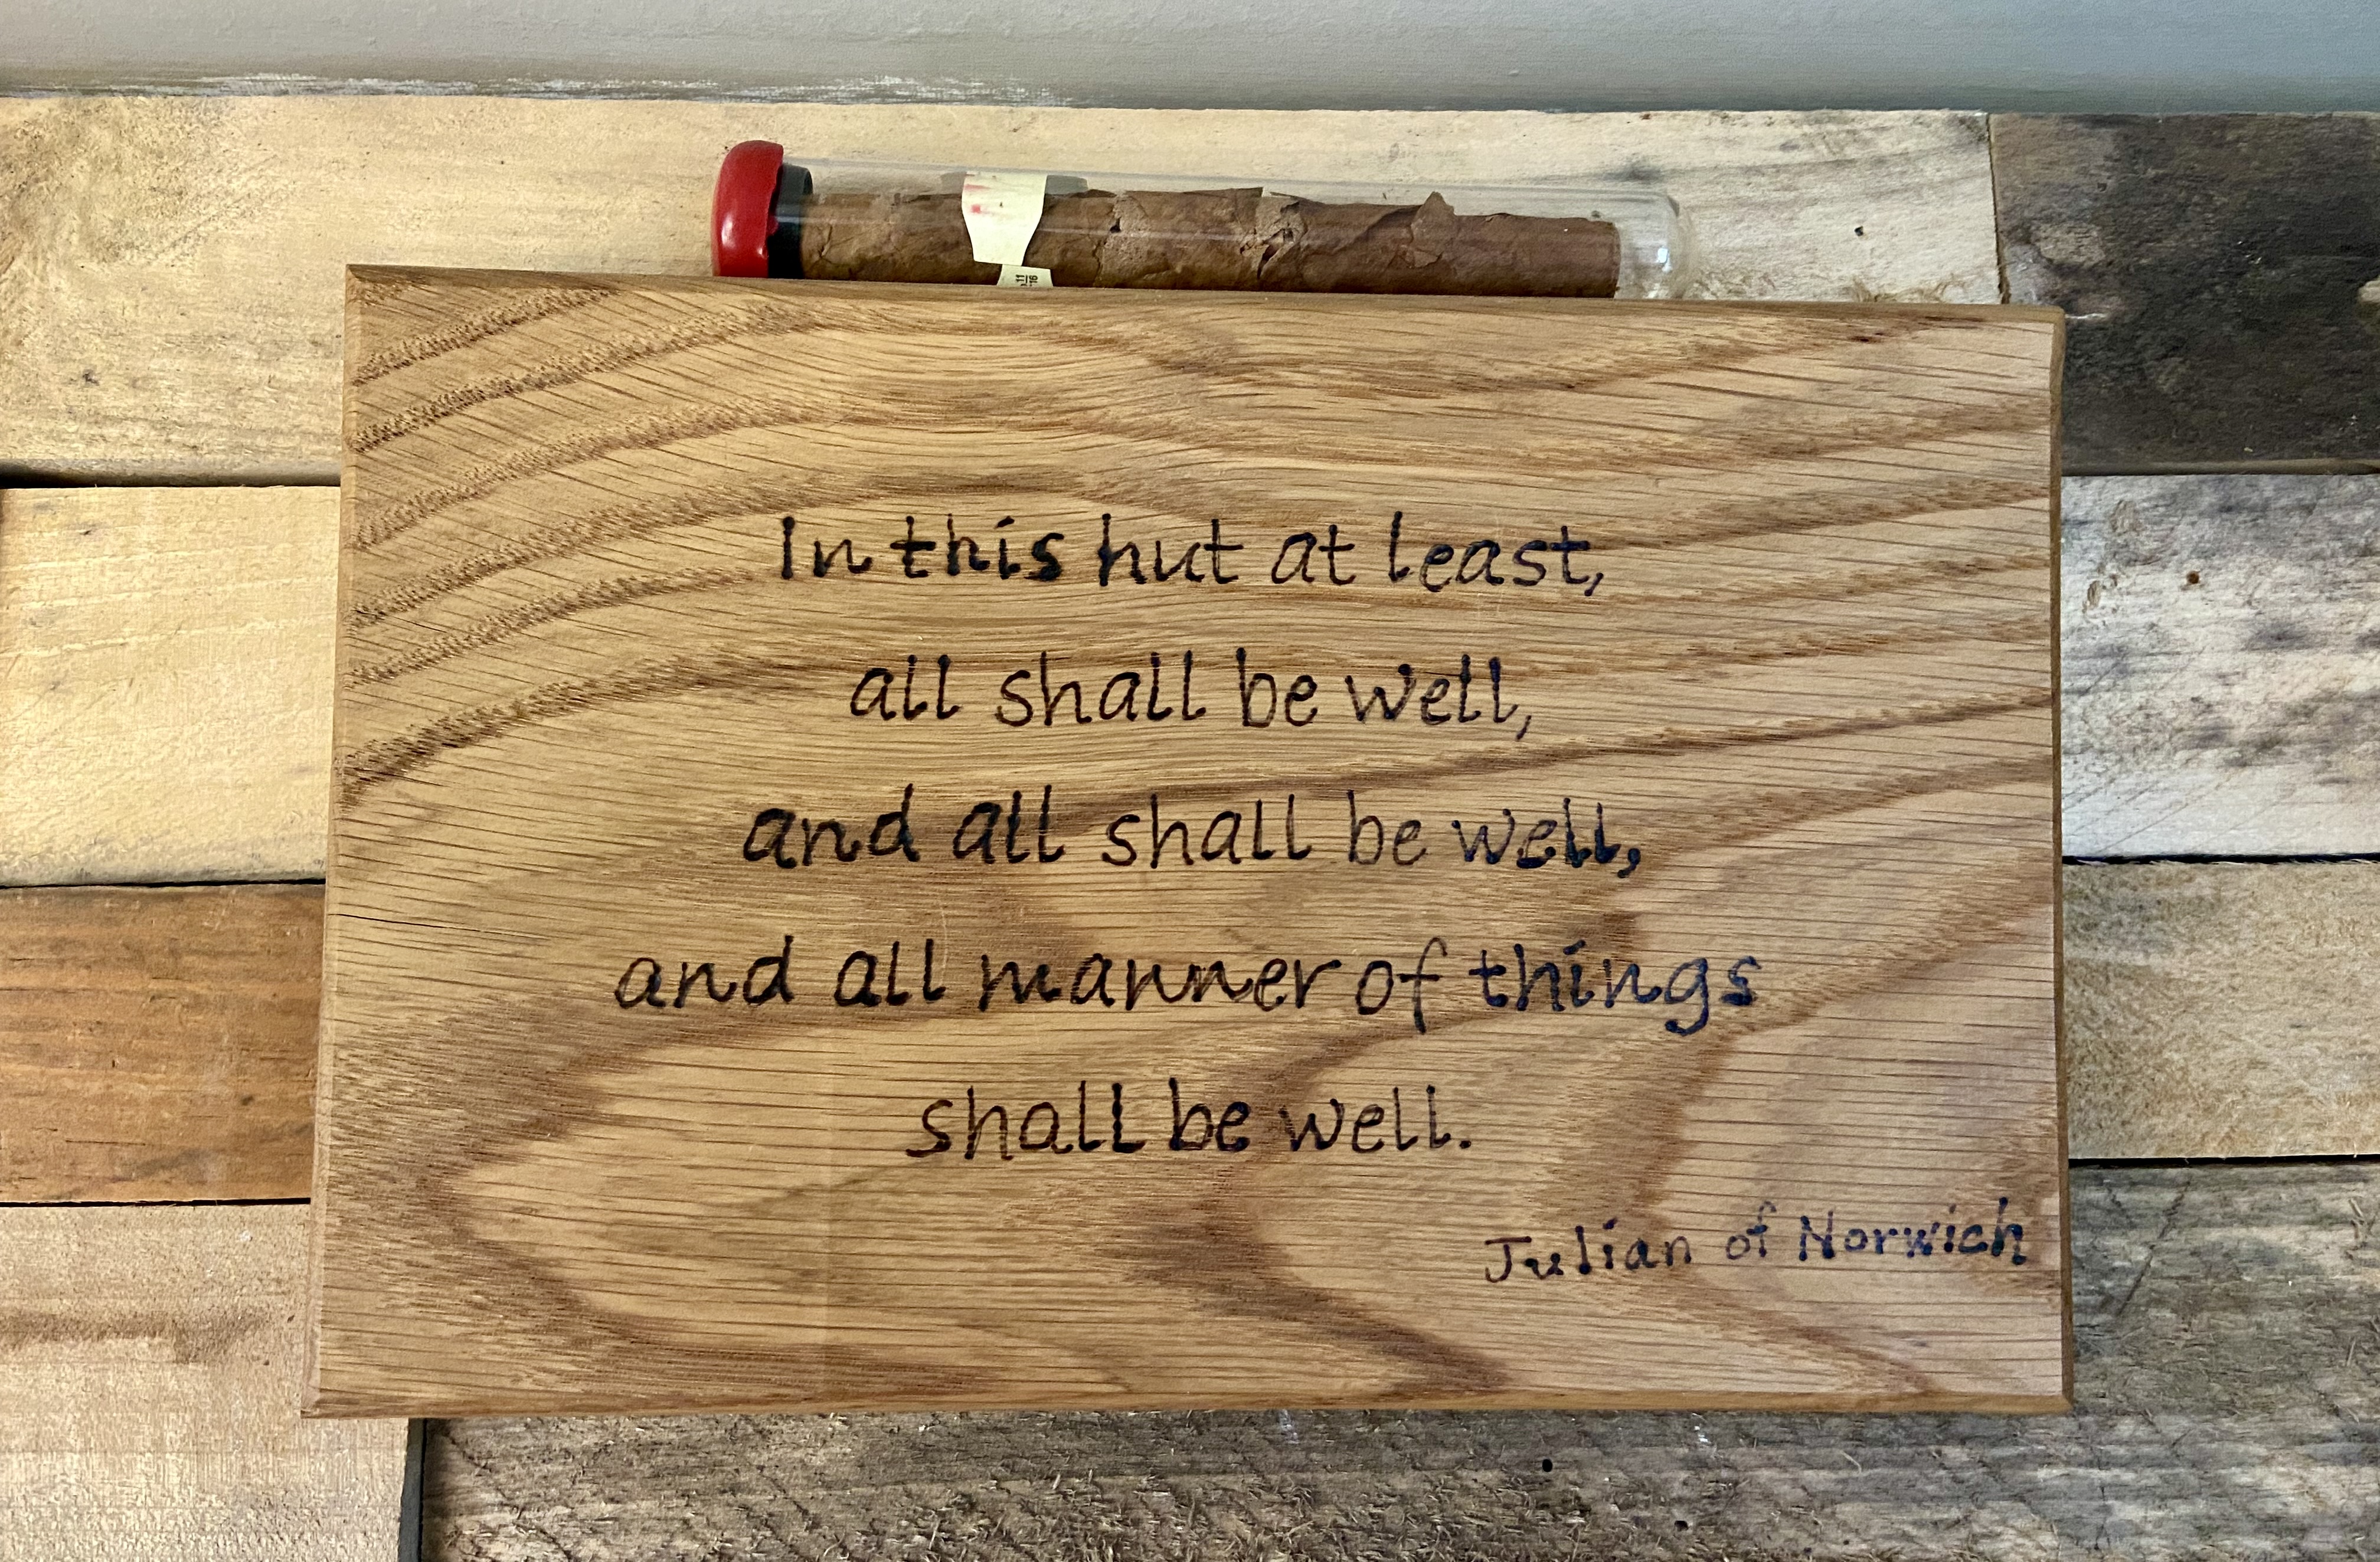 In this hut at least,
all shall be well,
and all shall be well,
and all manner of things
shall be well.
Julian of Norwich